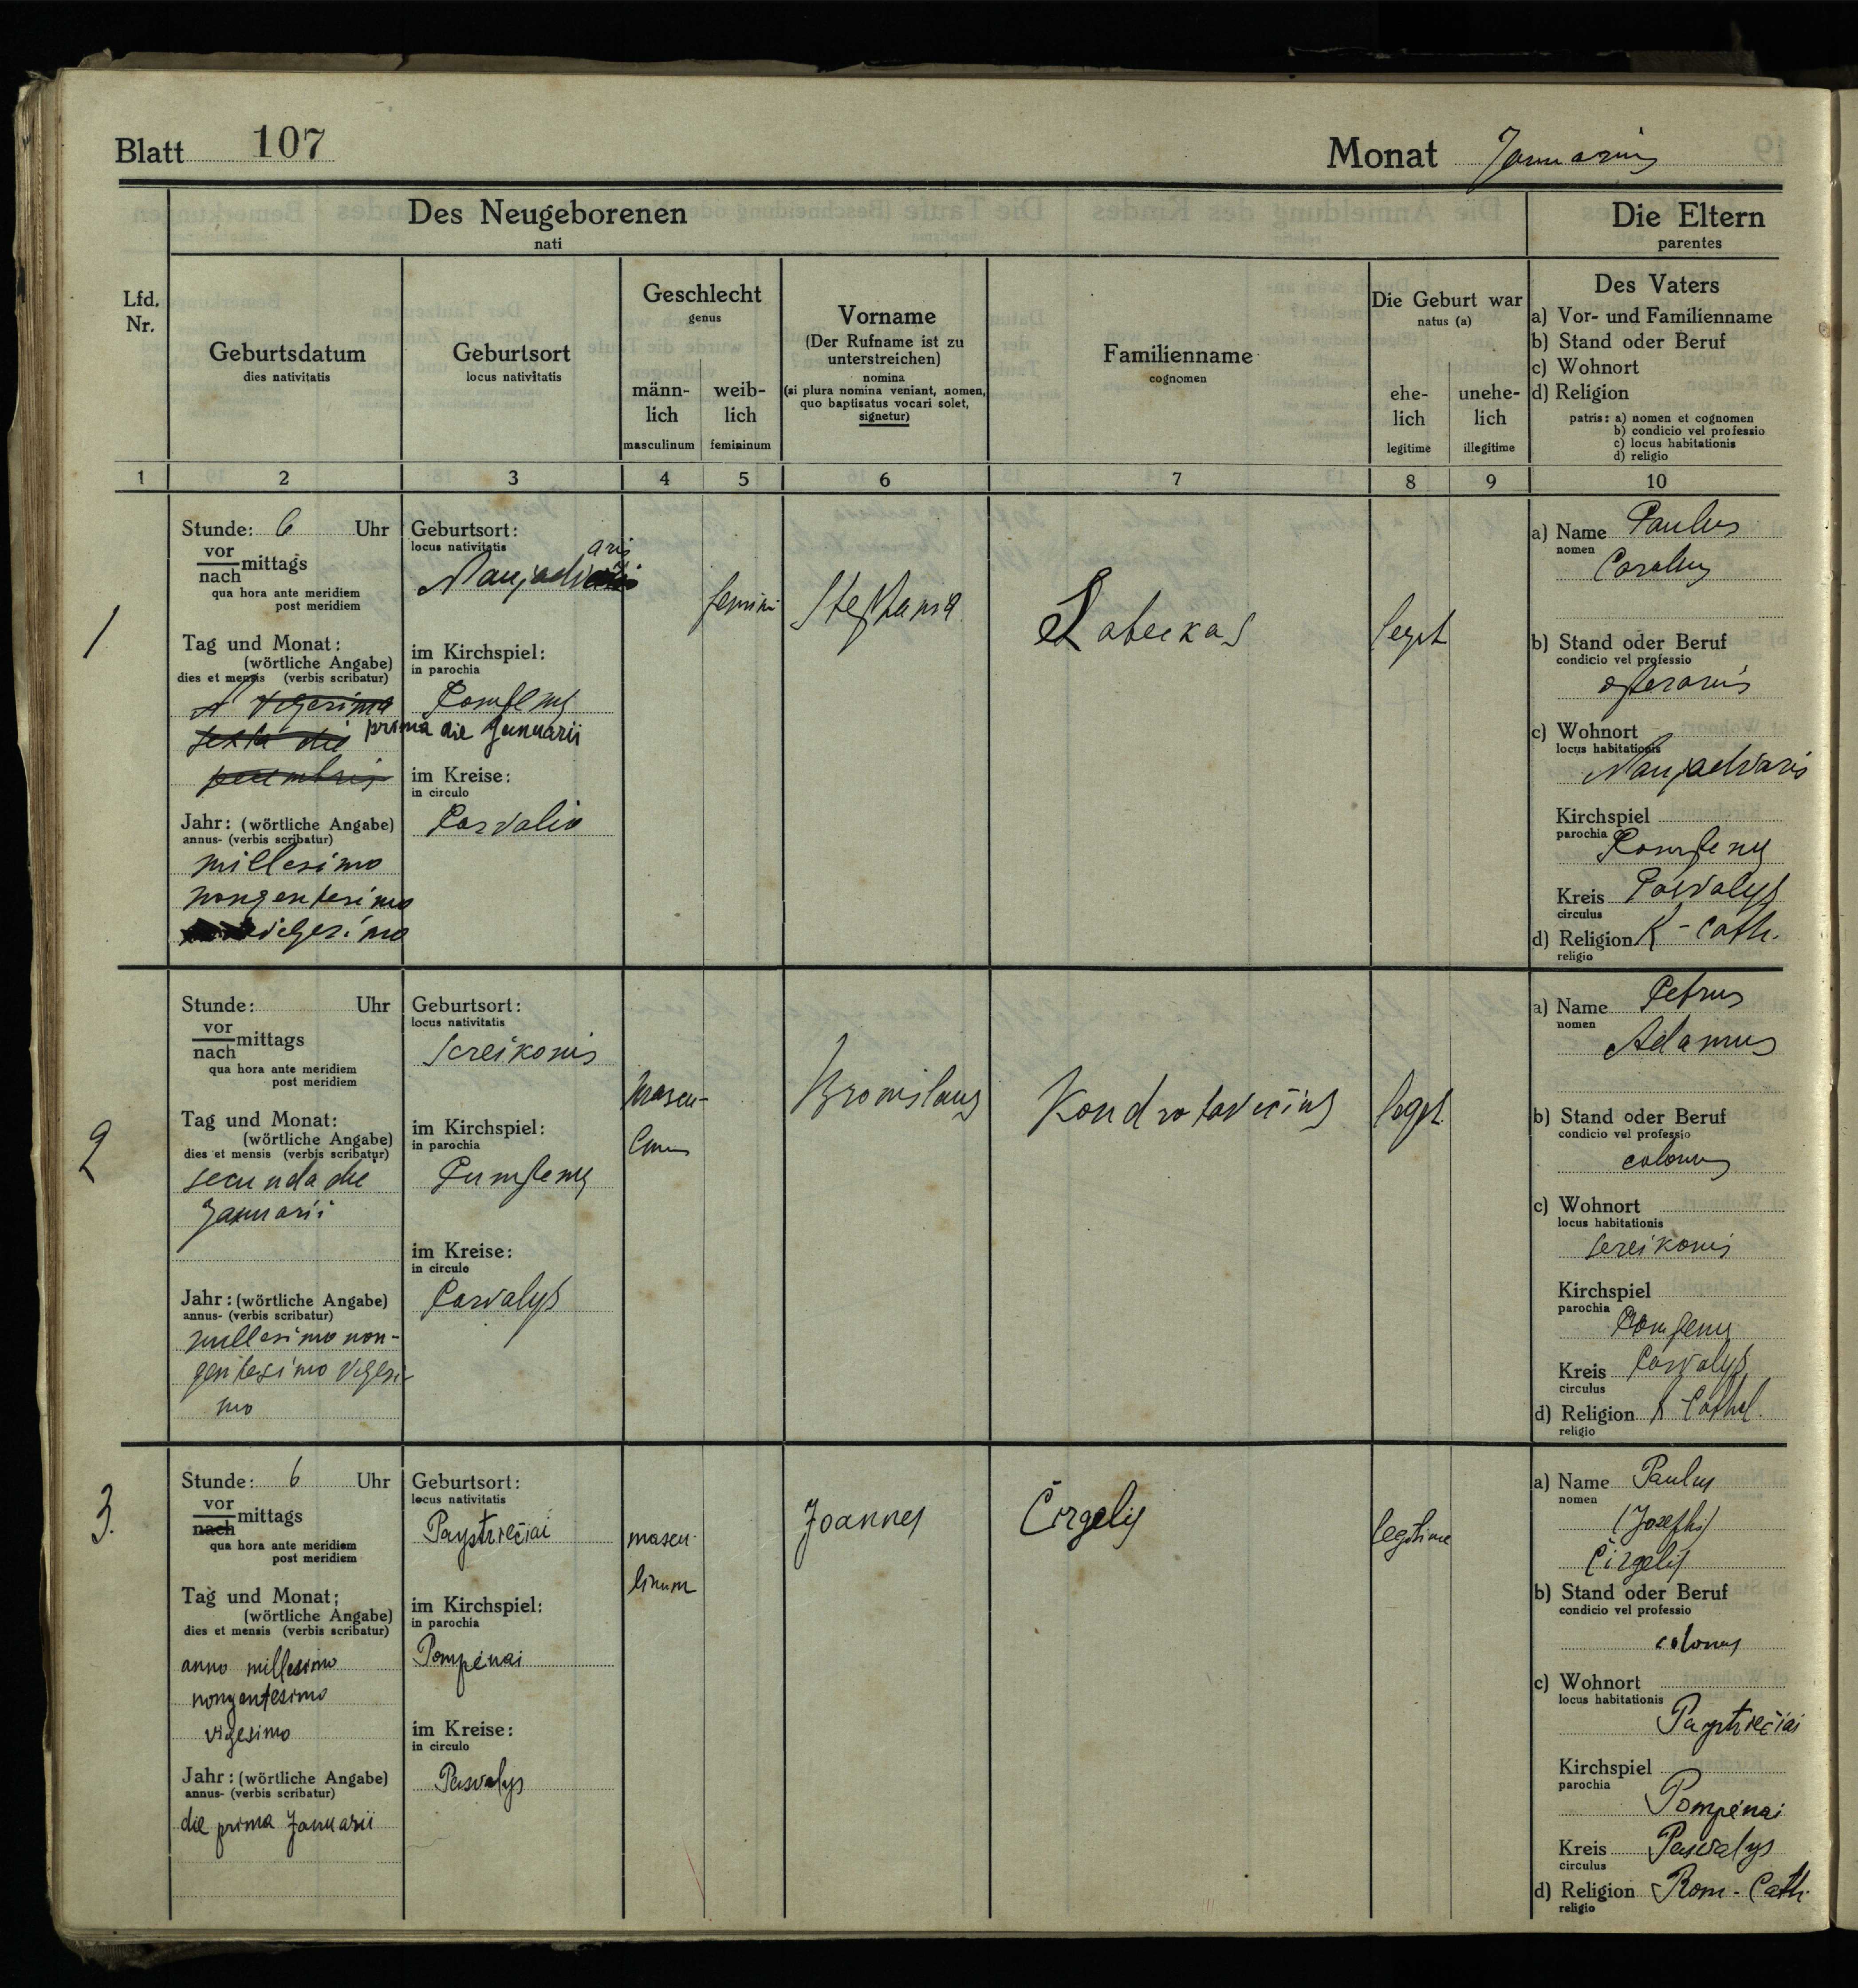 Blatt 107
Monat Januarius
Des Neugeborenen
nati
Die Eltern
parentes
Lfd.
Nr.
Geburtsdatum
dies nativitatis
Geburtsort
locus nativitatis
Geschlecht
genus
männ-
lich
masculinum
weib-
lich
femininum
Vorname
(Der Rufname ist zu
unterstreichen)
nomina
(si plura nomina veniant, nomen,
quo baptisatus vocari solet,
signetur)
Familienname
cognomen
Die Geburt war
natus (a)
ehe-
lich
legitime
unehe-
lich
illegitime
Des Vaters
a) Vor- und Familienname
b) Stand oder Beruf
c) Wohnort
d) Religion
patris: a) nomen et cognomen
b) condicio vel professio
c) locus habitationis
d) religio
1 2 3 4 5 6 7 8 9 10
1
Stunde: 6 Uhr
vor
nach mittags
qua hora ante meridiem
post meridiem
Tag und Monat:
(wörtliche Angabe)
dies et mensis (verbis scribatur)
vigesima
sexta die
prima die Januarii
Jahr: (wörtliche Angabe)
annus- (verbis scribatur)
millesimo
nongentesimo
vigesimo
Geburtsort:
locus nativitatis
aris
im Kirchspiel:
in parochia
im Kreise:
in circulo
femini
Stephania
Labeckas
legit
a) Name Paulus
nomen
Carolus
b) Stand oder Beruf
condicio vel professio
operarius
c) Wohnort
locus habitationis
Naujadvaris
Kirchspiel
parochia
Pompeny
Kreis Pasvalys
circulus
d) Religion R-cath.
religio
2
Stunde: Uhr
vor
nach mittags
qua hora ante meridiem
post meridiem
Tag und Monat:
(wörtliche Angabe)
dies et mensis (verbis scribatur)
secunda die
Januarii
Jahr: (wörtliche Angabe)
annus- (verbis scribatur)
millesimo non-
gentesimo vigesi-
mo
Geburtsort:
locus nativitatis
Sereikonis
im Kirchspiel:
in parochia
Pumpeny
im Kreise:
in circulo
Pasvalys
mascu-
linum
Bronislaus
Kondrotavičius
legit.
a) Name Petrus
nomen
Adamus
b) Stand oder Beruf
condicio vel professio
colonus
c) Wohnort
locus habitationis
Sereikonis
Kirchspiel
parochia
Pompeny
Kreis Pasvalys
circulus
d) Religion R Cathol.
religio
3.
Stunde: 6 Uhr
vor
nach mittags
qua hora ante meridiem
post meridiem
Tag und Monat:
(wörtliche Angabe)
dies et mensis (verbis scribatur)
anno millesimo
nongentesimo
vigesimo
Jahr: (wörtliche Angabe)
annus- (verbis scribatur)
die prima Januarii
Geburtsort:
locus nativitatis
Paystriečiai
im Kirchspiel:
in parochia
Pompénai
im Kreise:
in circulo
Pasvalys
mascu-
linum
Joannes
Čirgelis
legitime
a) Name Paulus
nomen
(Josephi)
Čirgelis
b) Stand oder Beruf
condicio vel professio
colonus
c) Wohnort
locus habitationis
Paystriečiai
Kirchspiel
parochia
Pompénai
Kreis Pasvalys
circulus
d) Religion Rom-Cath.
religio